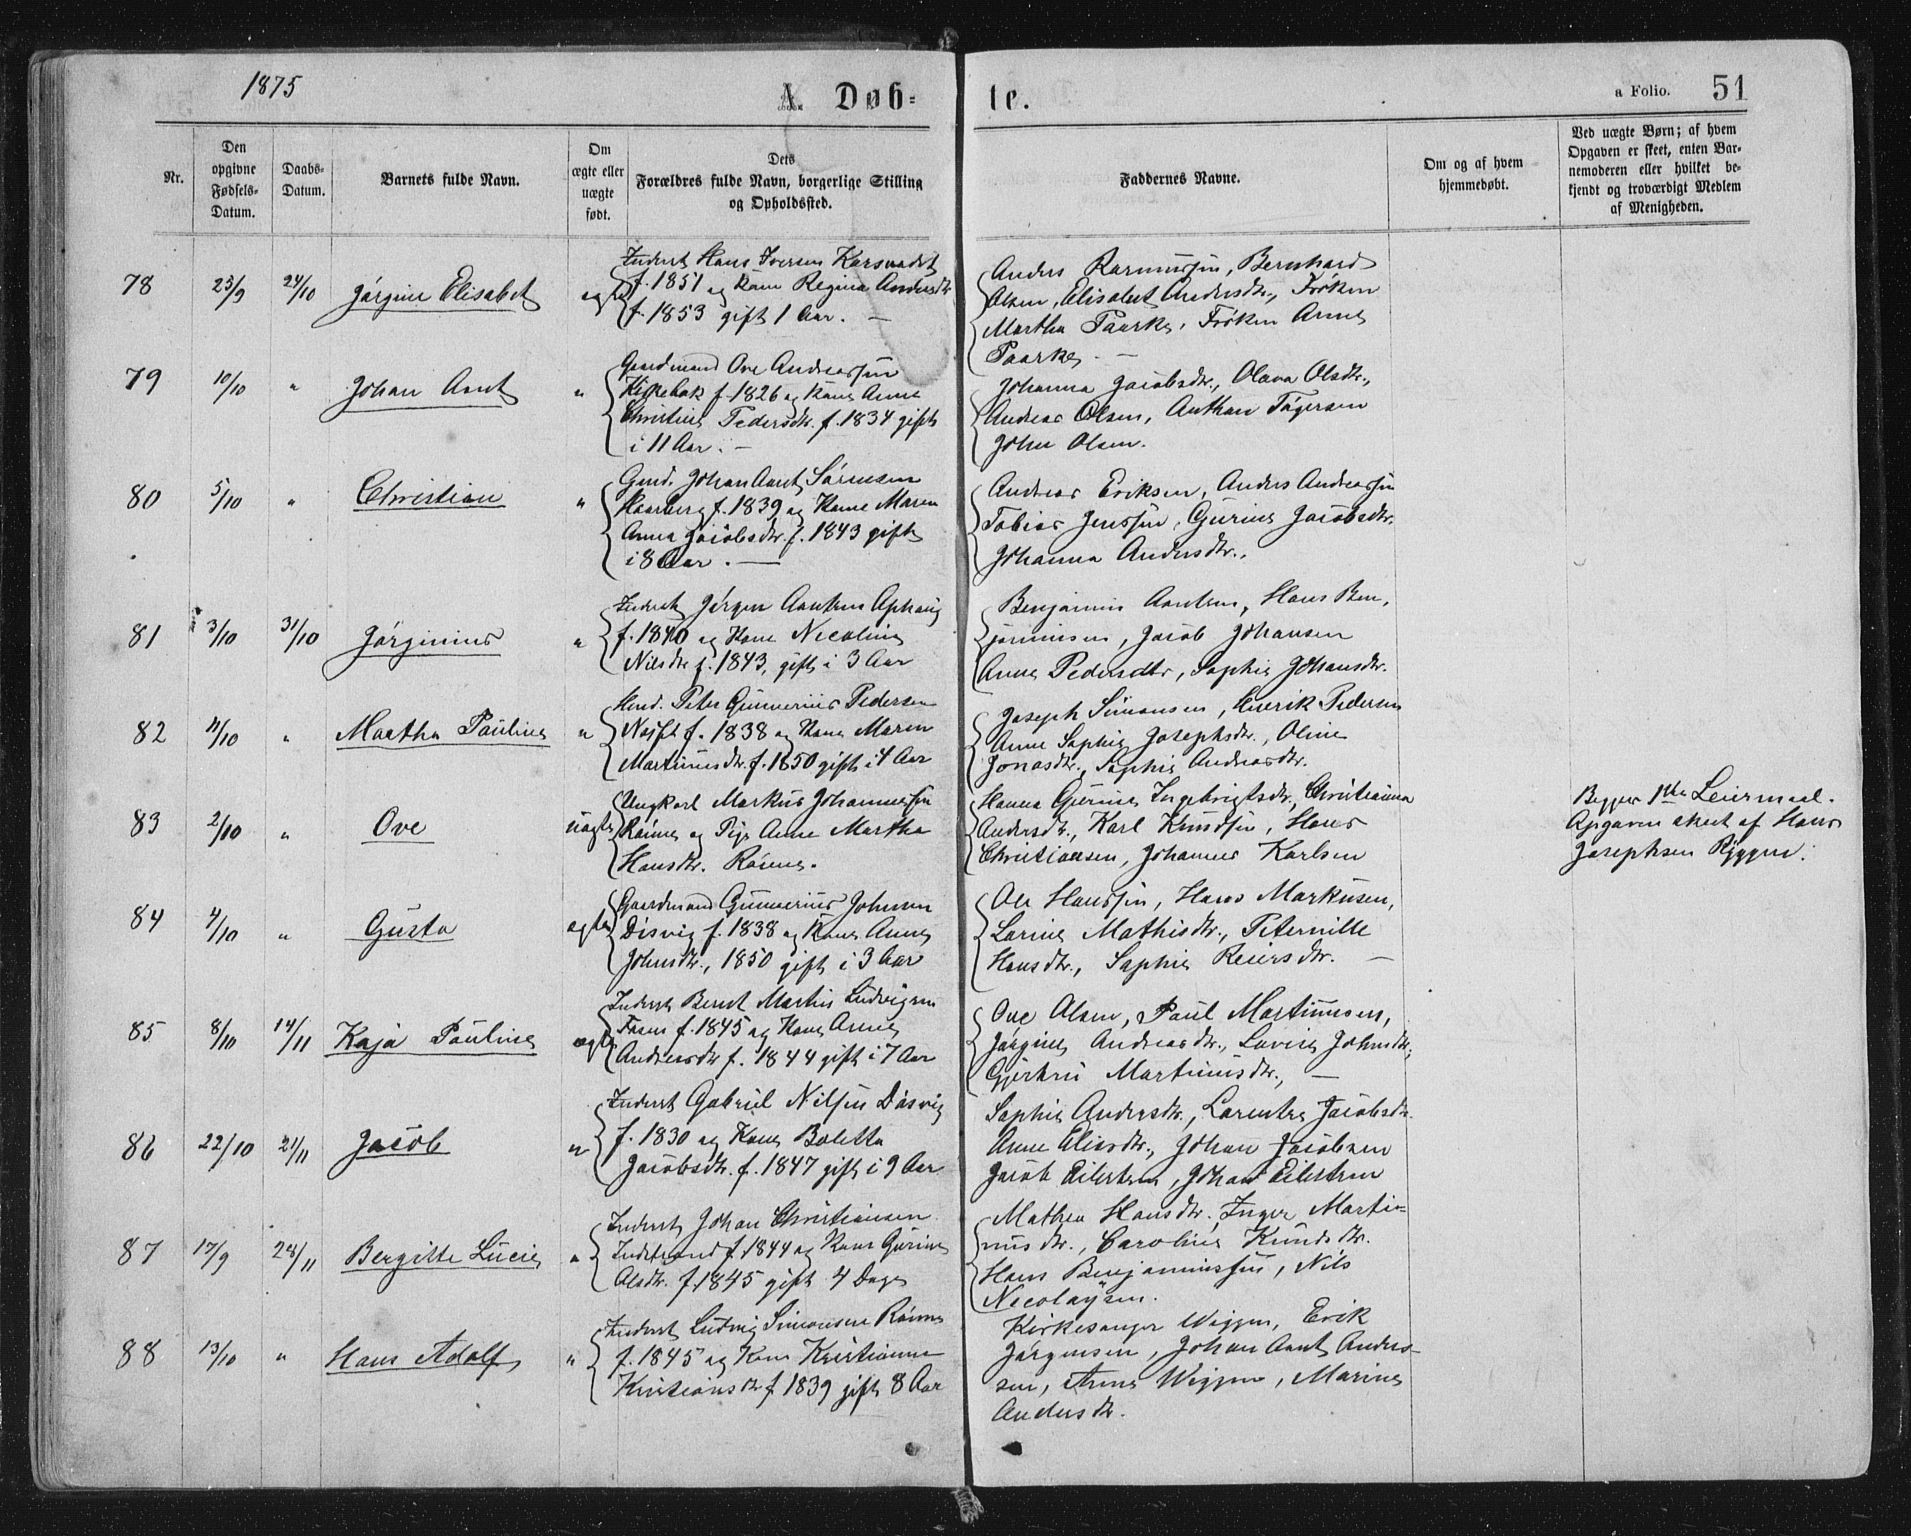 1875
A. Døb=
te.
a Folio. 51
Nr.
Den opgivne Fødsels-Datum.
Daabs-Datum.
Barnets fulde Navn.
Om ægte eller uægte født.
Dets Forældres fulde Navn, borgerlige Stilling og Opholdssted.
Faddernes Navne.
Om og af hvem hjemmedøbt.
Ved uægte Børn; af hvem Opgaven er skeet, enten Barnemoderen eller hvilket bekjendt og troværdigt Medlem af Menigheden.
78 23/9 24/10 Jørgine Elisabet ægte
Inderst Hans Iversen
f. 1851 og Kone Regina Andersdtr
f. 1853 gift 1 Aar. —
Anders Rasmussen, Bernhard
Olsen, Elisabet Andersdtr., Frøken
Martha Paarke, Frøken Anne
Paarke. —
79 10/10 " Johan Arnt "
Gaardmand Ove Andreassen
f. 1826 og Kone Anne
Christine Pedersdtr. f. 1834 gift
i 11 Aar. —
Johanna Jacobsdtr., Olava Olsdtr.,
Andreas Olsen, Anthon Tøgersen
John Olsen.
80 5/10 " Christian "
Gmd. Johan Arnt Sørensen
Haarberg f. 1839 og Kone Maren
Anna Jacobsdtr. f. 1843 gift
i 8 Aar. —
Andreas Eriksen, Anders Andreassen
Tobias Jenssen, Gurine Jacobsdtr.
Johanna Andersdtr.,
81 3/10 31/10 Jørginius "
Inderst Jørgen Arntsen Aphaug
f. 1840 og Kone Nicoline
Nilsdtr f. 1843, gift i 3 Aar
Benjamin Arntsen, Hans Ben,
jaminsen, Jacob Johansen
Anne Pedersdtr, Sophie Johansdtr.
82 11/10 " Martha Pauline "
Peter Gunnerius Pedersen
f. 1838 og Kone Maren
Martinusdtr. f. 1850 gift i 4 Aar
Joseph Simonsen, Henrik Pedersen
Anne Sophie Josephsdtr., Oline
Jonasdtr., Sophie Andreasdtr.
83 2/10 " Ove uægte
Ungkarl Markus Johannessen
og Pige Anne Martha
Hansdtr.
Hanna Gurine Ingebrigtsdtr, Christianna
Andersdtr., Karl Knudsen, Hans
Christiansen, Johannes Karlsen
Begges 1ste Leiermaal.
Opgaven skeet af Hans
Josephsen
84 4/10 " Gusta ægte
Gaardmand Gunnerius Johnsen
Disvig f. 1838 og Kone Anne
Johnsdtr., 1850 gift i 3 Aar
Ole Hanssen, Hans Markusen,
Lorine Mathisdtr., Peternille
Hansdtr., Sophie Reiersdtr. —
85 8/10 14/11 Kaja Pauline ægte
Inderst Bernt Martin Ludvigsen
f. 1845 og Kone Anne
Andersdtr f. 1844 gift i 7 Aar
Ove Olsen, Paul Martinusen,
Jørgine Andreasdtr., Lovise Johnsdtr,
Gjertrui Martinusdtr., —
86 22/10 21/11 Jacob "
Inderst Gabriel Nilsen Disvig
f. 1830 og Kone Boletta
Jacobsdtr. f. 1847 gift i 9 Aar
Sophie Andersdtr., Lorentse Jacobsdtr.
Anne Eliasdtr., Johan Jacobsen
Jacob Eilertsen, Johan Eilertsen
87 17/9 28/11 Bergitte Lucie "
Inderst Johan Christiansen
f. 1844 og Kone Gurine
Olsdtr. f. 1845 gift 4 Dage
Mathea Hansdtr. Inger Marti-
nusdtr., Caroline Knudsdtr.
Hans Benjaminssen, Nils
Nicolaysen.
88 13/10 " Hans Adolf "
Inderst Ludvig Simonsen
f. 1845 og Kone Kristianna
Kristiansdtr f 1839 gift 8 Aar
Kirkesanger Wiggen, Erik
Jørgensen, Johan Arnt Anders-
sen, Anne Wiggen, Marine
Andersdtr.